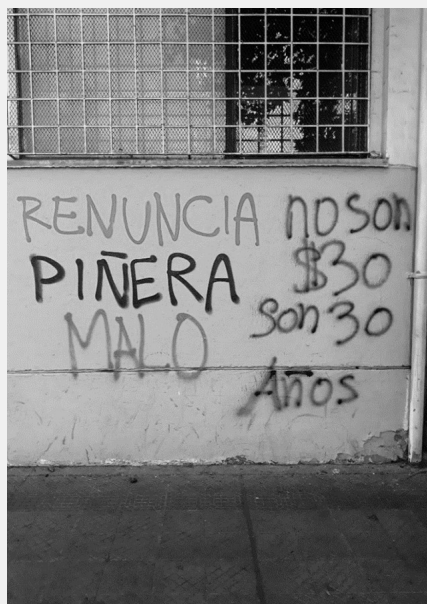 RENUNCIA
PIÑERA
MALO
no son
$30
Son 30
Años